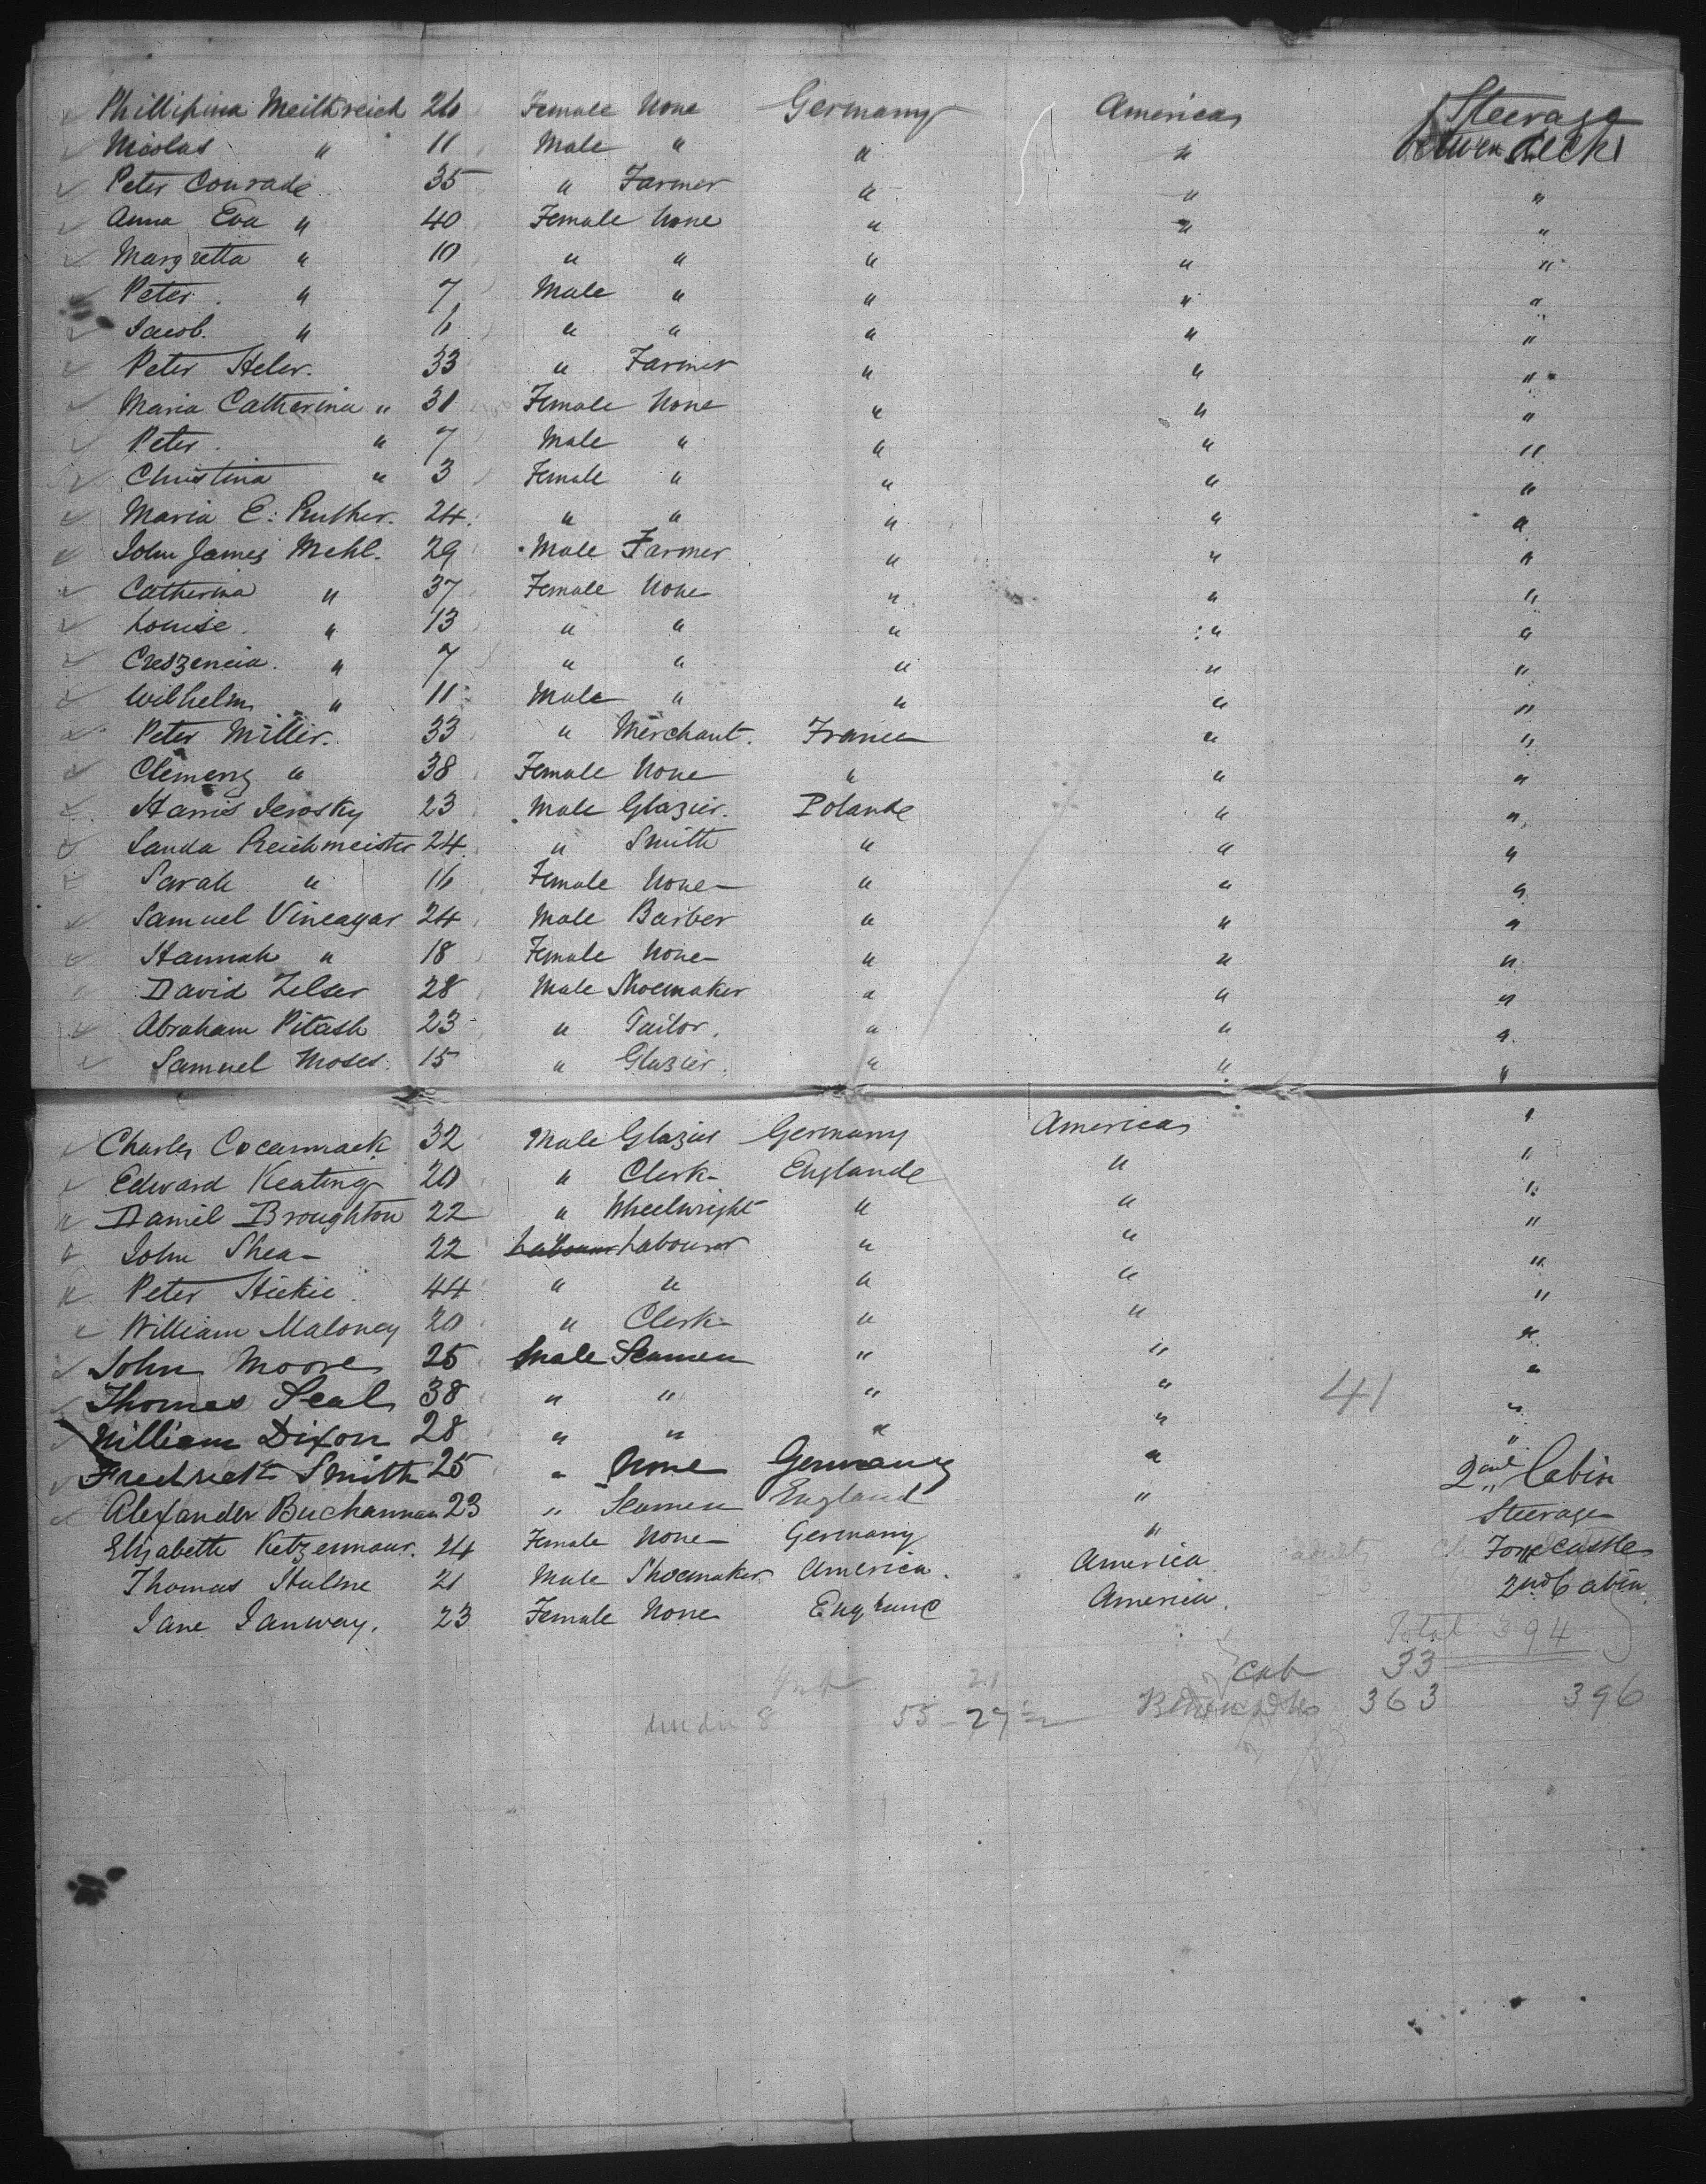 Phillipina Meithreich 26 Female None Germany America Steerage
Nicolas " 11 Male " " " between decks
Peter Conrade 35 " Farmer " " "
Anna Eva " 40 Female None " " "
Margretta " 10 " " " " "
Peter. " 7 Male " " " "
Jacob. " 6 " " " " "
Peter Heler. 33 " Farmer " " "
Maria Catherina " 31 Female None " " "
Peter. " 7 Male " " " "
Christina " 3 Female " " " "
Maria E: Ruther. 24 " " " " "
John James Mehl. 29 Male Farmer " " "
Catherina " 37 Female None " " "
Louise. " 13 " " " " "
Creszencia. " 7 " " " " "
Wilhelm " 11 Male " " " "
Peter Miller. 33 " Merchant. France " "
Clemenz " 38 Female None " " "
Harris Jerosky 23 Male Glazier. Polande " "
Sanda Reichmeister 24 " Smith " " "
Sarah " 16 Female None " " "
Samuel Vineagar 24 Male Barber " " "
Hannah " 18 Female None " " "
David Zelser 28 Male Shoemaker " " "
Abraham Pitash 23 " Tailor. " " "
Samuel Moses. 15 " Glazier. " " "
Charles Cocarmack 32 Male Glazier Germany America "
Edward Keating 20 " Clerk Englande " "
Daniel Broughton 22 " Wheelwright " " "
John Shea 22 Labourer Labourer " " "
Peter Hickie. 44 " " " " "
William Maloney 20 " Clerk " " "
John Moore 25 Male Seamen " " "
Thomas Seal 38 " " " " 41 "
William Dixon 28 " " " " "
Fredrick Smith 25 " None Germany " 2nd Cabin
Alexander Buchannan 23 " Seamen England " Steerage
Elizabeth Ketzenmaur. 24 Female None Germany " Forecastle
Thomas Hulme 21 Male Shoemaker America. America 2nd Cabin
Jane Janway. 23 Female None England America.
Total 394
Cab 33
under 8 55 - 27½ 363 396